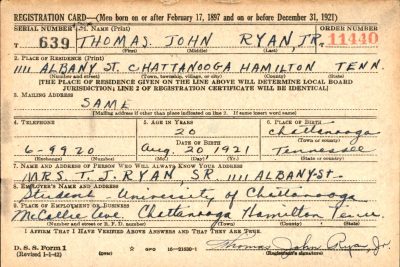 REGISTRATION CARD—(Men born on or after February 17, 1897 and on or before December 31, 1921)
SERIAL NUMBER 1. NAME (Print) ORDER NUMBER
T 639 THOMAS JOHN RYAN, JR. 11440
(First) (Middle) (Last)
2. PLACE OF RESIDENCE (Print)
1111 ALBANY ST. CHATTANOOGA HAMILTON TENN.
(Number and street) (Town, township, village, or city) (County) (State)
[THE PLACE OF RESIDENCE GIVEN ON THE LINE ABOVE WILL DETERMINE LOCAL BOARD
JURISDICTION; LINE 2 OF REGISTRATION CERTIFICATE WILL BE IDENTICAL]
3. MAILING ADDRESS
SAME
[Mailing address if other than place indicated on line 2. If same insert word same]
4. TELEPHONE 5. AGE IN YEARS 6. PLACE OF BIRTH
20 Chattanooga
DATE OF BIRTH (Town or county)
6-9920 Aug. 20 1921 Tennessee
(Exchange) (Number) (Mo.) (Day) (Yr.) (State or country)
7. NAME AND ADDRESS OF PERSON WHO WILL ALWAYS KNOW YOUR ADDRESS
MRS. T. J. RYAN SR. 1111 ALBANY ST.
8. EMPLOYER'S NAME AND ADDRESS
Student University of Chattanooga
9. PLACE OF EMPLOYMENT OR BUSINESS
McCallie Ave. Chattanooga Hamilton Tenn.
(Number and street or R. F. D. number) (Town) (County) (State)
I AFFIRM THAT I HAVE VERIFIED ABOVE ANSWERS AND THAT THEY ARE TRUE.
D. S. S. Form 1
(Revised 1-1-42) GPO 16-21630-1 Thomas John Ryan, Jr.
(Registrant's signature)